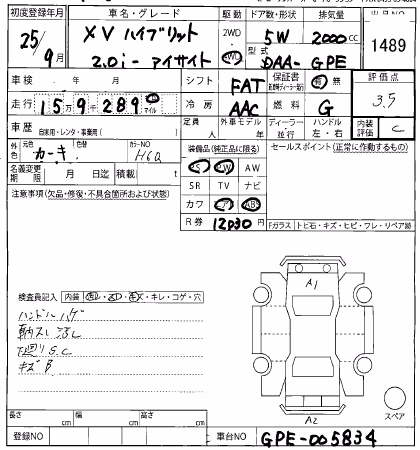 初度登録年月 車名・グレード 駆動 ドア数・形状 排気量 出品NO
25/9月 XV ハイブリット 2WD 5W 2000cc 1489
2.0i- アイサイト 4WD 型式 DAA-GPE
車検 年 月 シフト FAT 保証書 有 無 評価点
走行 15万9千289 km マイル 冷房 AAC 燃料 G 3.5
車歴 自家用・レンタ・事業用( ) 定員 人 外車モデル 年 ディーラー 並行 ハンドル 左・右 内装評価 C
外色 元色 カーキ 色替 カラーNO H6Q 装備品(純正品に限る) セールスポイント(正常に作動するもの)
名義変更期限 月 日迄 積載 t PS PW AW
注意事項(欠品・修復・不具合箇所および状態) SR TV ナビ
カワ エアB ABS
R券 12030円 Fガラス トビ石・キズ・ヒビ・フレ・リペア跡
A1
検査員記入 内装 ・キレ・コゲ・穴
ハンドルハゲ
下廻りS.C
キズ
A2
スペア
長さ cm 幅 cm 高さ cm
登録NO 車台NO GPE-005834